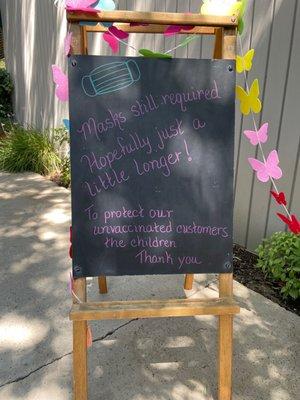 Masks still required
Hopefully just a
little longer!
To protect our
unvaccinated customers
the children
Thank you